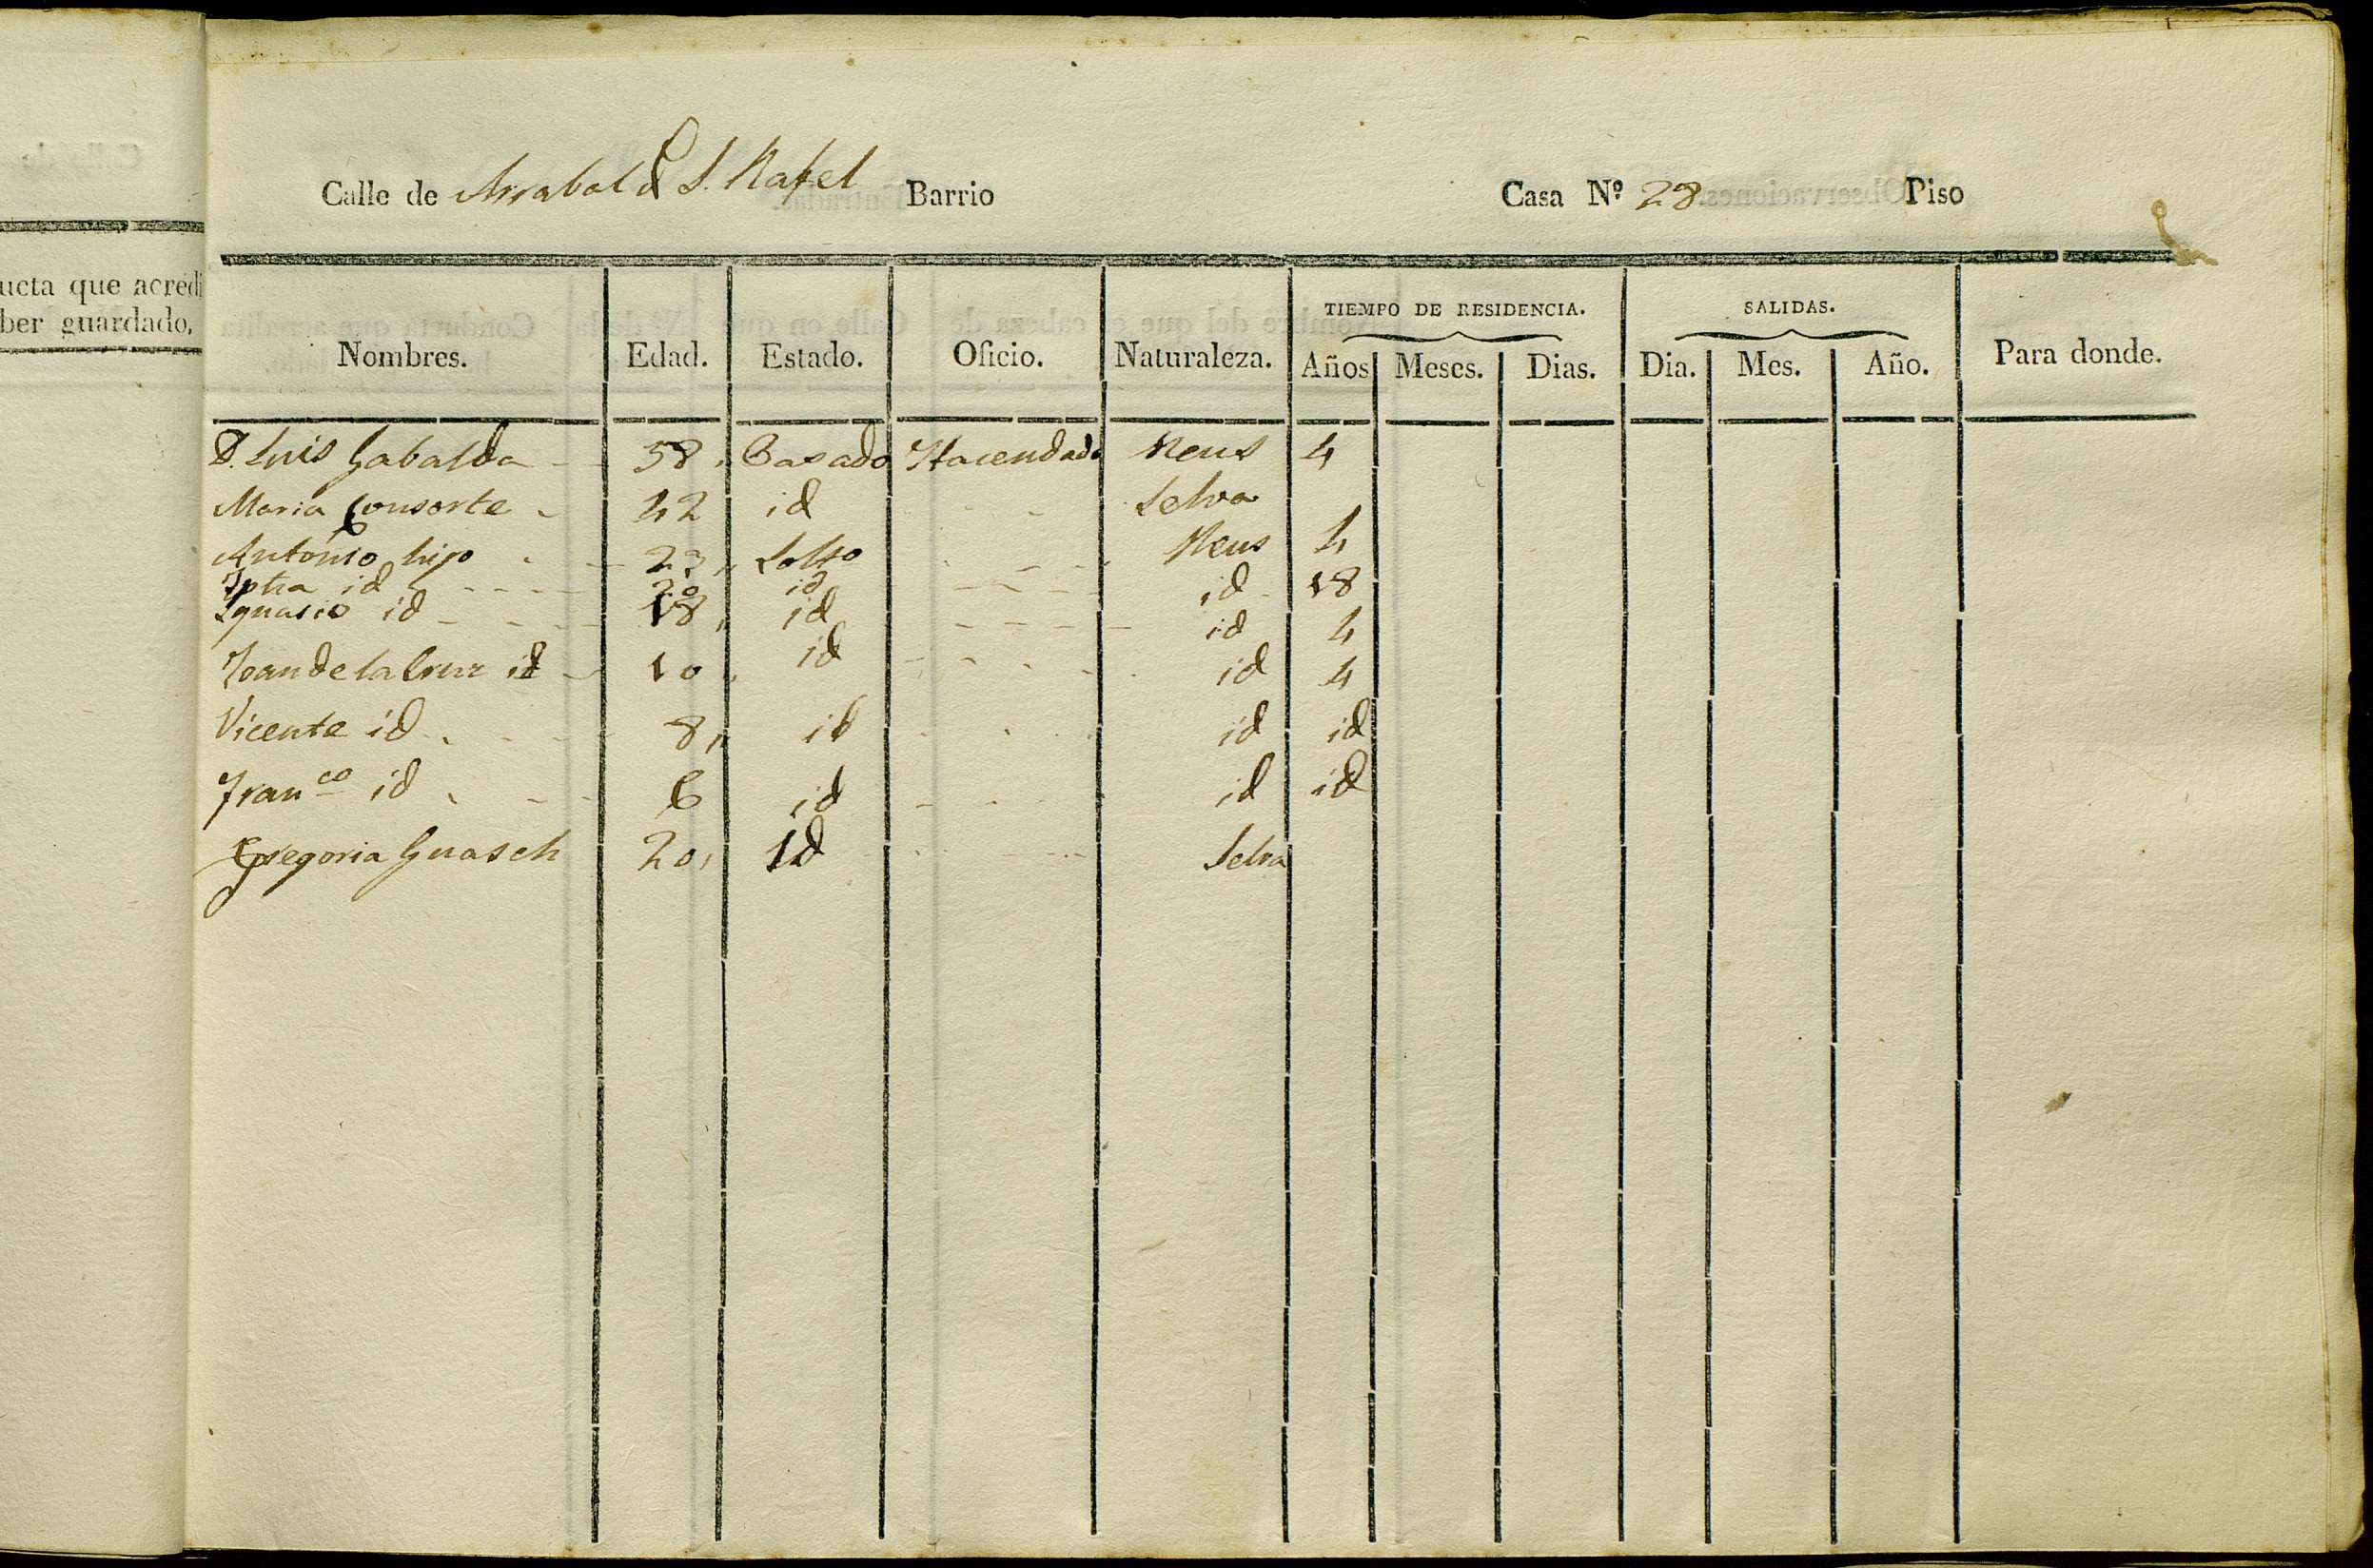 ucta que acredi
ber guardado,
Calle de Arrabal d S. Rafel Barrio Casa Nº 28 Piso
TIEMPO DE RESIDENCIA. SALIDAS.
Nombres. Edad. Estado. Oficio. Naturaleza. Años Meses. Dias. Dia. Mes. Año. Para donde.
D. Luis Gabalda 58 Casado Hacendado Reus 4
Maria Consorte 42 id Selva
Antonio hijo 23 Solto Reus 4
id 20 id id 18
Ignasio id 18 id id 4
Joan de la Cruz id 10 id id 4
Vicente id 8 id id id
Franco id 6 id id id
Gregoria Guasch 20 id Selva